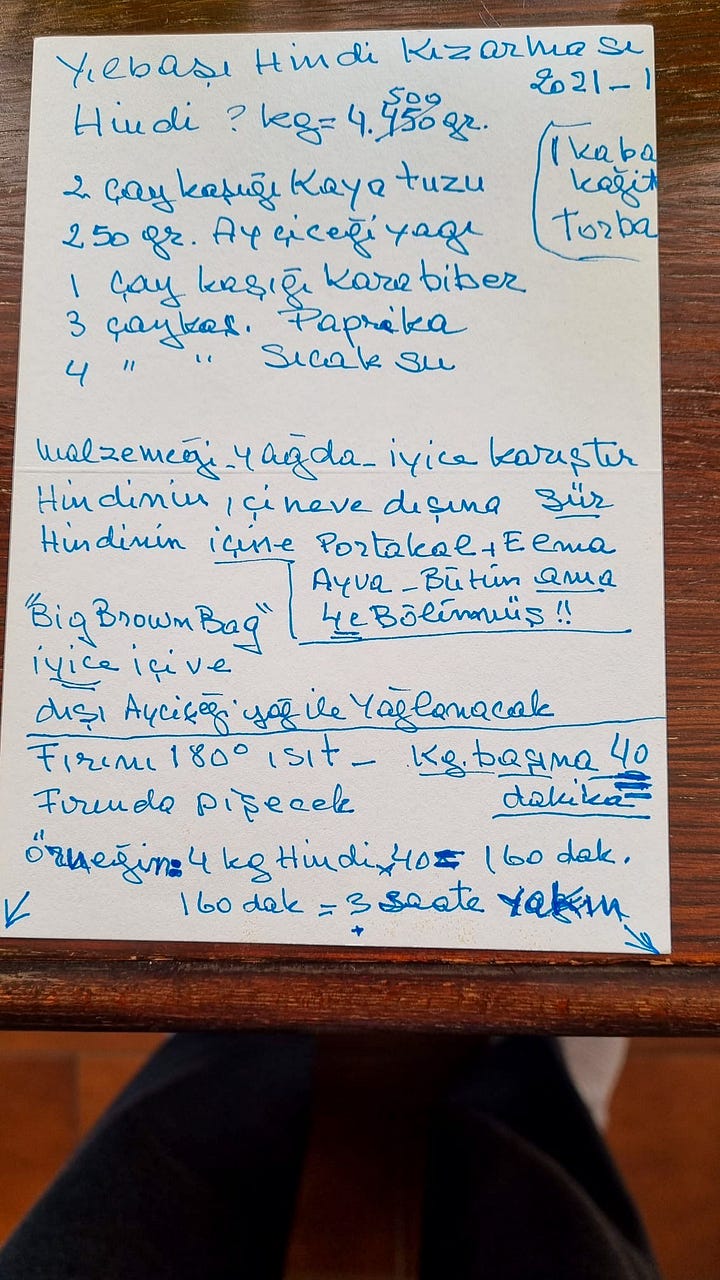 Yılbaşı Hindi Kızarması
2021-1
Hindi ? kg = 4.450 gr.
500
1 kaba
kağıt
torba
2 çay kaşığı Kaya tuzu
250 gr. Ayçiceği yagı
1 çay kaşığı Karabiber
3 çaykaş. Paprika
4 " " Sıcak su
Malzemeği - yağda - iyice karıştır
Hindinin içine ve dışına sür
Hindinin içine Portakal + Elma
Ayva - Bütün ama
4e Bölünmüş !!
"Big Brown Bag"
iyice içi ve
dışı Ayciçeği yağ ile Yağlanacak
Fırını 180° ısıt - Kg. başına 40
Fırında pişecek dakika
Örneğin: 4 kg Hindi x 40 = 160 dak.
160 dak = 3 saate yakın